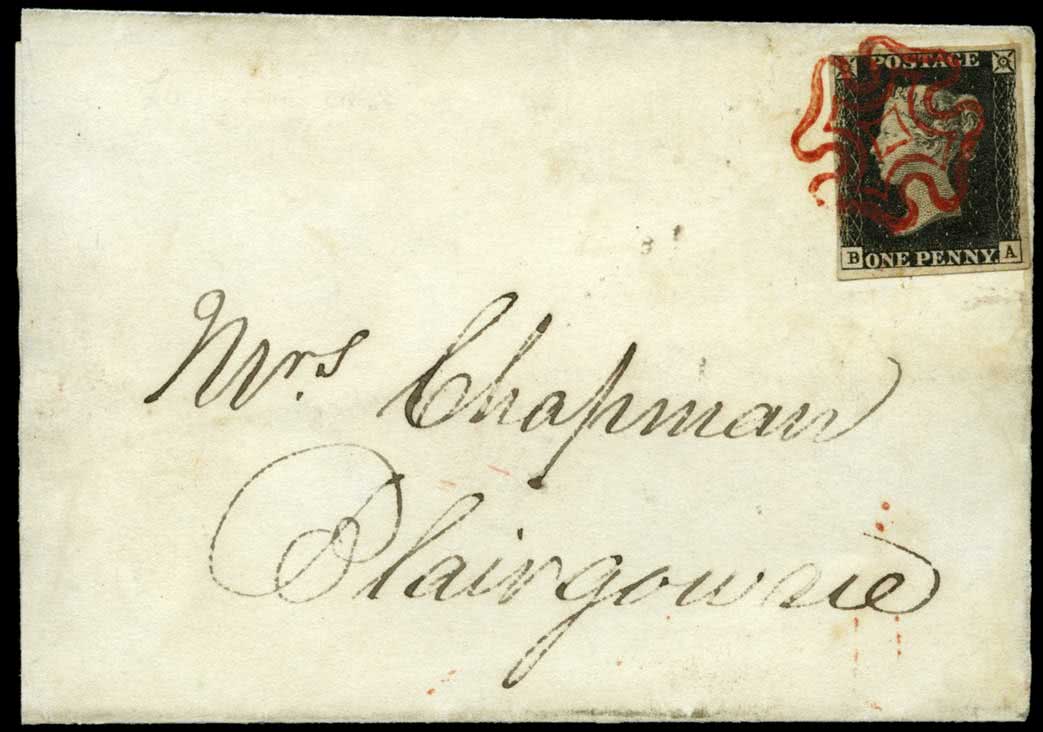 POSTAGE
B ONE PENNY. A
Mrs. Chapman
Blairgowrie